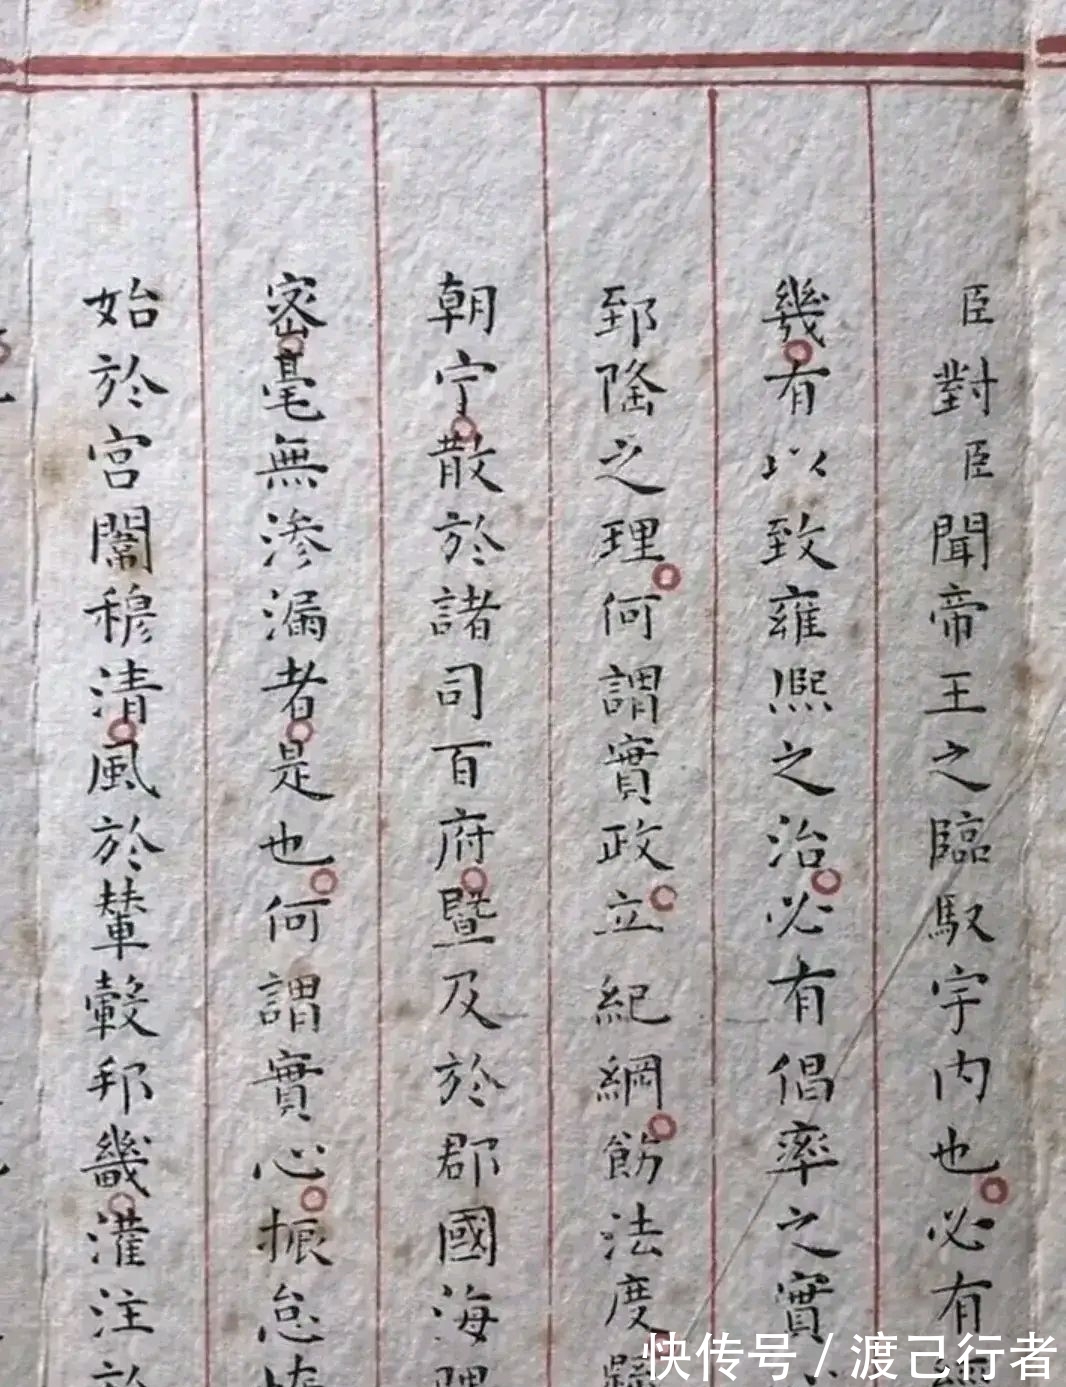 臣對臣聞帝王之臨馭宇內也必有經
幾有以致雍熙之治必有倡率之實
郅隆之理何謂實政立紀綱飭法度
朝宁散於諸司百府暨及於郡國海隅
密毫無滲漏者是也何謂實心振怠
始於宮闈穆清風於輦轂邦畿灌注於
快传号/渡己行者